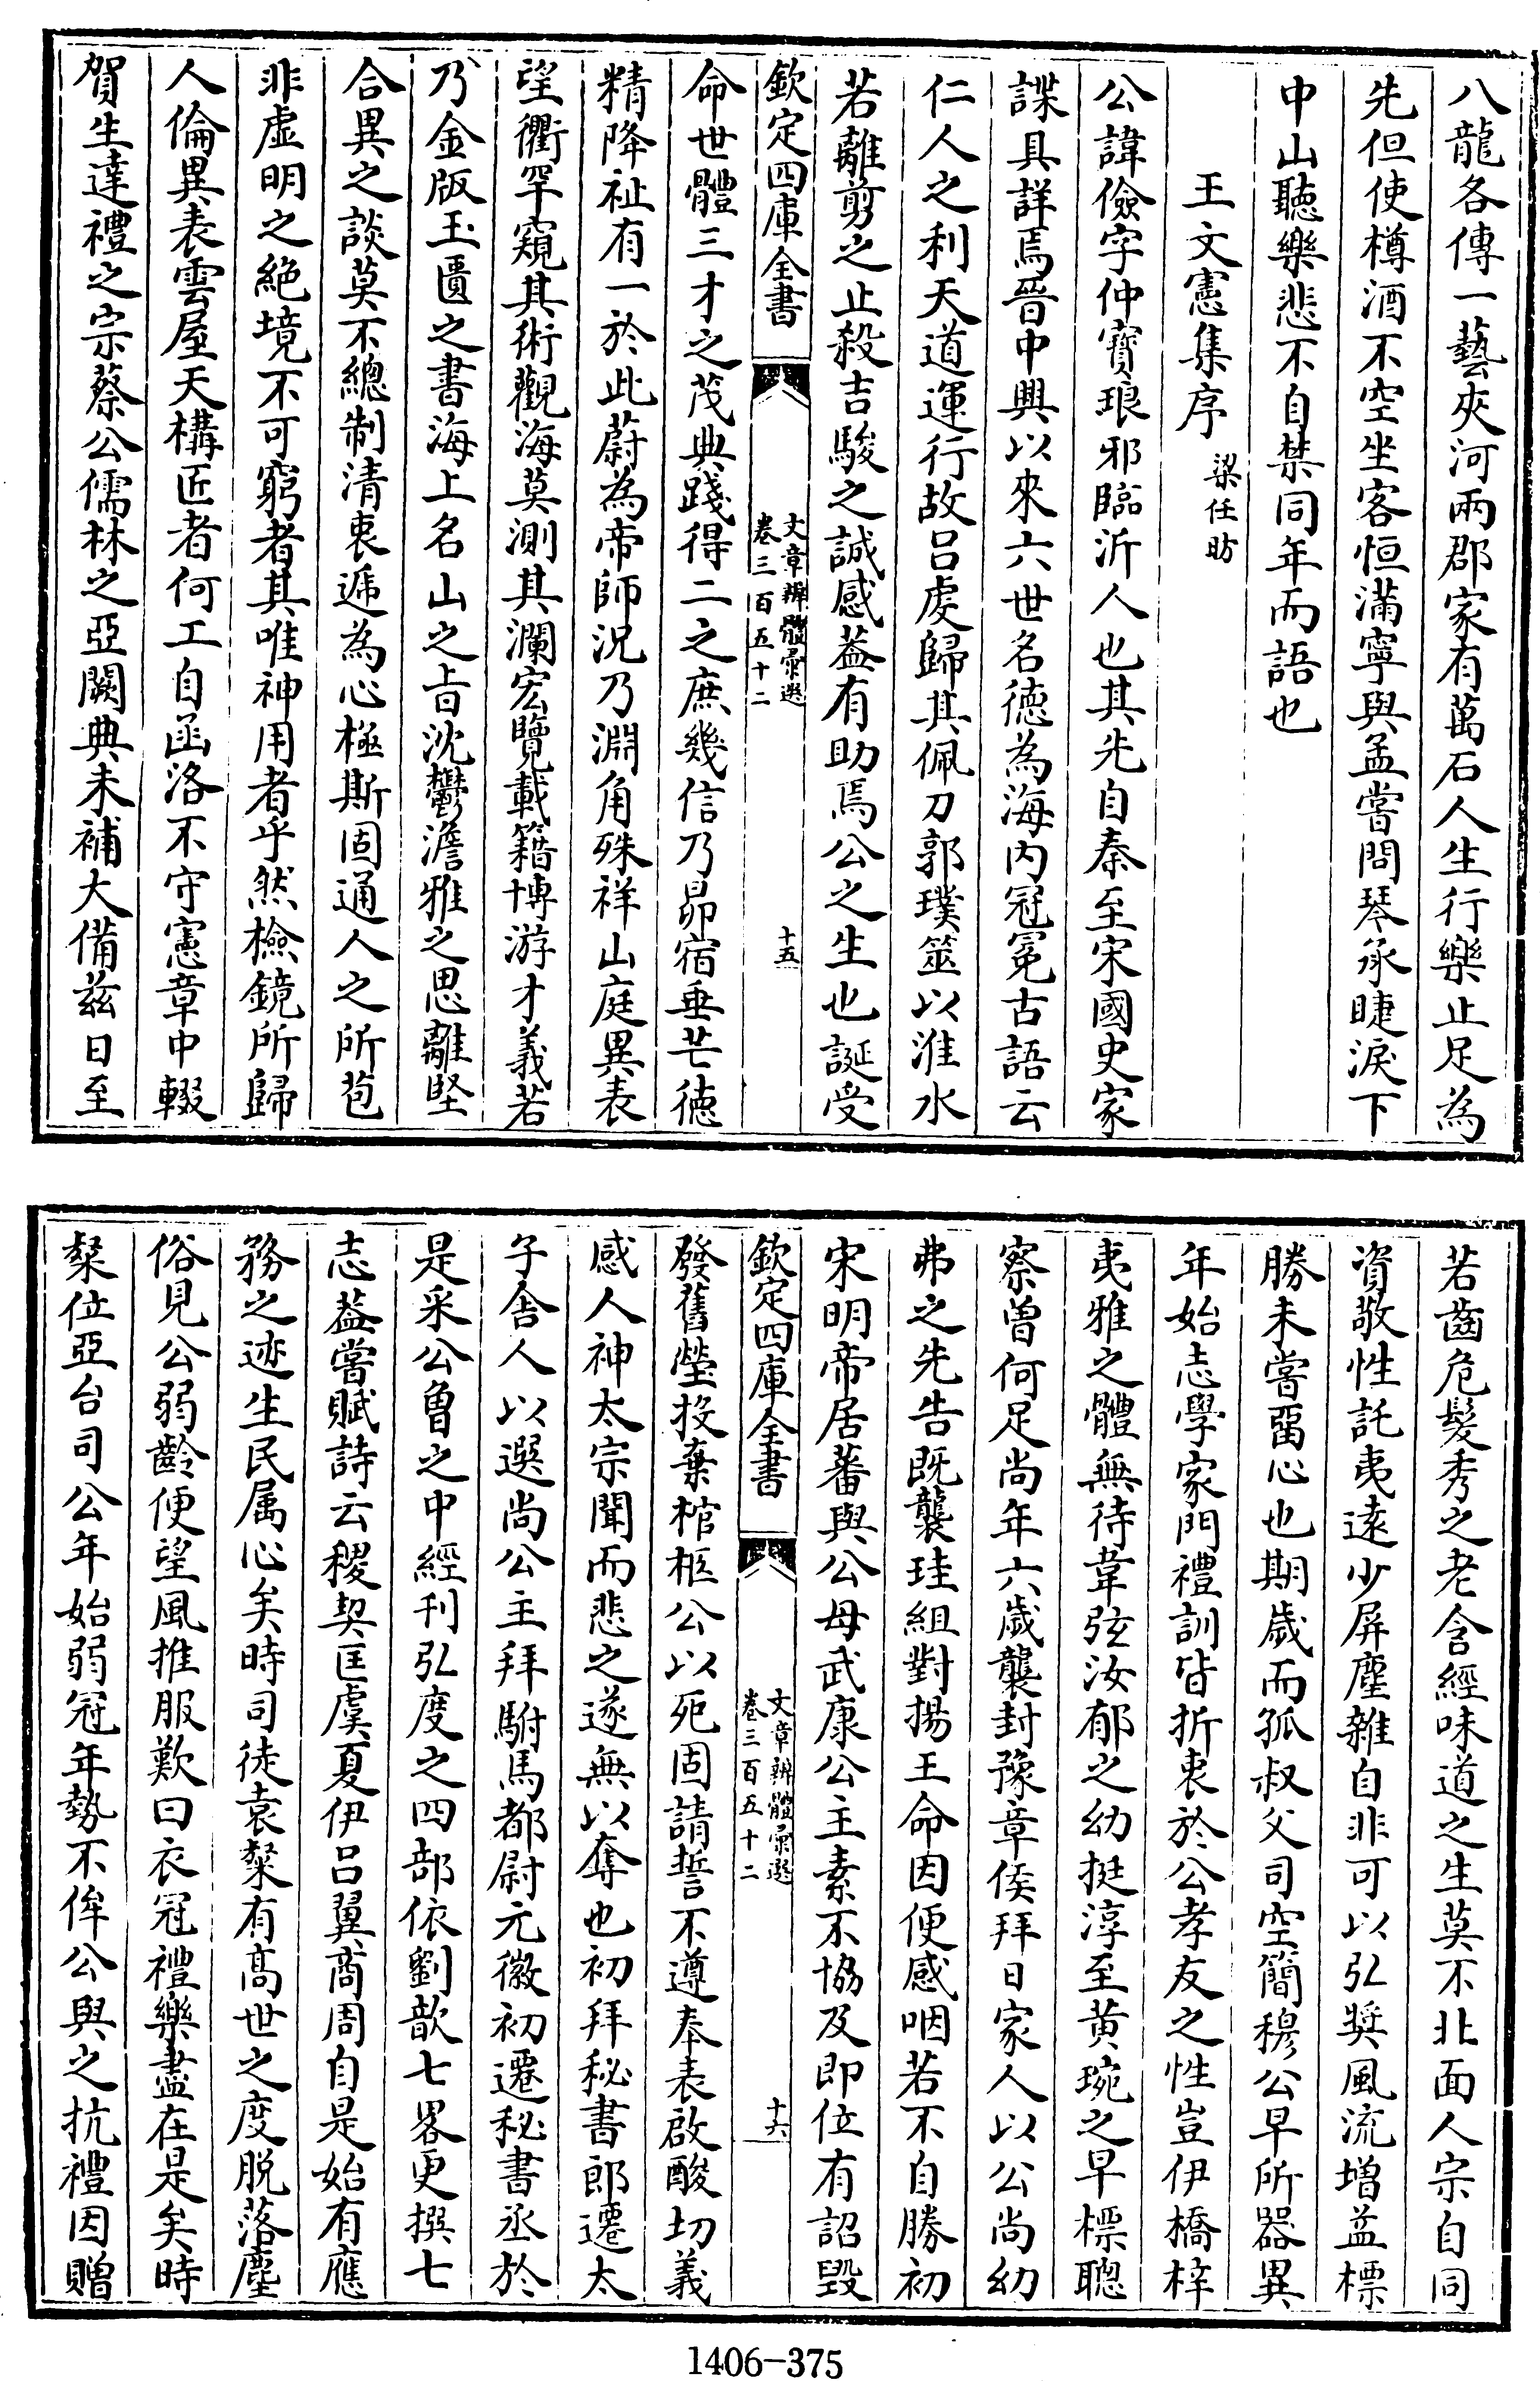 八龍各傳一藝夾河兩郡家有萬石人生行樂止足為
先但使樽酒不空坐客恒滿寧與孟嘗問琴承睫淚下
中山聽樂悲不自禁同年而語也
王文憲集序 梁任昉
公諱儉字仲寶琅邪臨沂人也其先自秦至宋國史家
諜具詳焉晉中興以來六世名德為海內冠冕古語云
仁人之利天道運行故呂虔歸其佩刀郭璞筮以淮水
若離剪之止殺吉駿之誠感葢有助焉公之生也誕受
欽定四庫全書 文章辨體彙選 卷三百五十二 十五
命世體三才之茂典踐得二之庶幾信乃昴宿垂芒德
精降祉有一於此蔚為帝師況乃淵角殊祥山庭異表
望衢罕窺其術觀海莫測其瀾宏覽載籍博游才義若
乃金版玉匱之書海上名山之旨沈鬱澹雅之思離堅
合異之談莫不總制清衷遞為心極斯固通人之所苞
非虛明之絕境不可窮者其唯神用者乎然檢鏡所歸
人倫異表雲屋天構匠者何工自函洛不守憲章中輟
賀生達禮之宗蔡公儒林之亞闕典未補大備茲日至
若齒危髮秀之老含經味道之生莫不北面人宗自同
資敬性託夷遠少屏塵雜自非可以弘奬風流增益標
勝未嘗畱心也期歲而孤叔父司空簡穆公早所器異
年始志學家門禮訓皆折衷於公孝友之性豈伊橋梓
夷雅之體無待韋弦汝郁之幼挺淳至黄琬之早標聰
察曽何足尚年六歲襲封豫章侯拜日家人以公尚幼
弗之先告既襲珪組對揚王命因便感咽若不自勝初
宋明帝居蕃與公母武康公主素不協及即位有詔毀
欽定四庫全書 文章辨體彙選 卷三百五十二 十六
發舊塋投棄棺柩公以死固請誓不遵奉表啟酸切義
感人神太宗聞而悲之遂無以奪也初拜秘書郎遷太
子舍人以選尚公主拜駙馬都尉元徽初遷秘書丞於
是采公曾之中經刊弘度之四部依劉歆七畧更撰七
志葢嘗賦詩云稷契匡虞夏伊呂翼商周自是始有應
務之迹生民属心矣時司徒袁粲有髙世之度脱落塵
俗見公弱齡便望風推服歎曰衣冠禮樂盡在是矣時
粲位亞台司公年始弱冠年勢不侔公與之抗禮因贈
1406-375